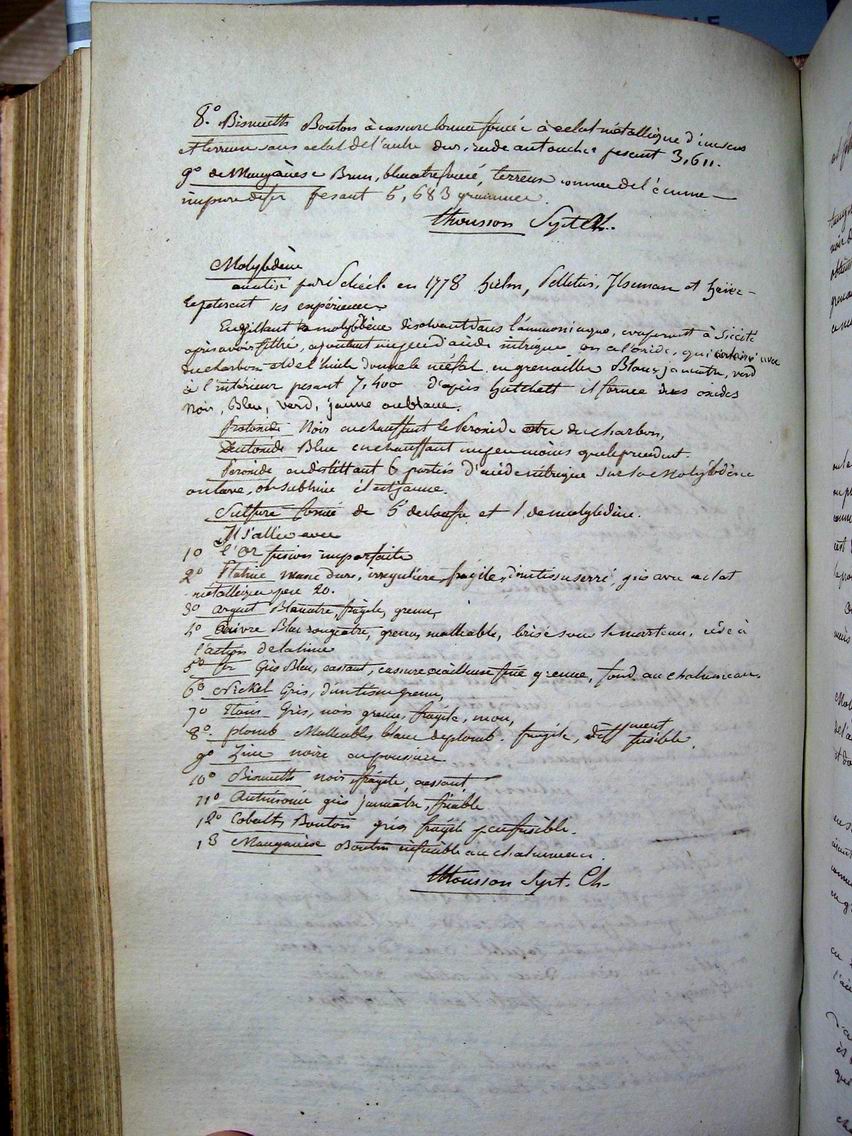 8° Bismuth Bouton à cassure terne foncé à éclat métallique d'un sens
et terreux sans éclat de l'autre dur, rude au toucher pesant 3,611.
9° de Manganèse Brun, bleuatre foncé, terreux comme de l'écume
impure de fer pesant 5,683 grammes
Thomson Syst. Ch.
Molybdène
analisé par Schéele en 1778 hielm, Pelletier, Ilseman et
repeterent ses expériences
En grillant le molybdène disolvant dans l'ammoniaque, evaporant à Siccité
après avoir filtré, ajoutant un peu d'acide nitrique on a l'oxide, qui avec
du charbon et de l'huile donne le métal en grenailles Blanc jaunatre, verd
à l'intérieur pesant 7,400 d'après hatchett il forme des oxides
Noir, Bleu, verd, jaune ou blanc.
Protoxide Noir en chauffant le Peroxide avec du charbon,
Deutoxide Bleu en chauffant un peu moins que le précedent.
Peroxide en distillant 6 parties d'acide nitrique sur la Molybdène
on lave, on sublime il est jaune.
Sulfure formé de 5 de soufre et 1 de molybdène.
Il s'allie avec
1° l'Or fusion imparfaite
2° Platine Masse dure, irreguliere, fragile, d'un tissu serré, gris avec eclat
métallique pese 20.
3° argent Blanatre, fragile, grenu,
4° Cuivre Bleu rougeatre, grenu, malleable, brise sous le marteau, cède à
l'action de la lime
5° fer Gris Bleu, cassant, cassure écailleuse fine grenue, fond au chalumeau
6° Nickel Gris, d'un tissu grenu,
7° Etain Gris, noir grenu, fragile, mou,
8° plomb Malleable, blanc de plomb, fragile, diffment fusible.
9° Zinc noire, en poussière
10° Bismuth noir fragile, cassant
11° Antimoine gris jaunatre, friable
12° Cobalt Bouton gris fragile peu fusible.
13 Manganèse Bouton infusible au chalumeau.
Thomson Syst. Ch.